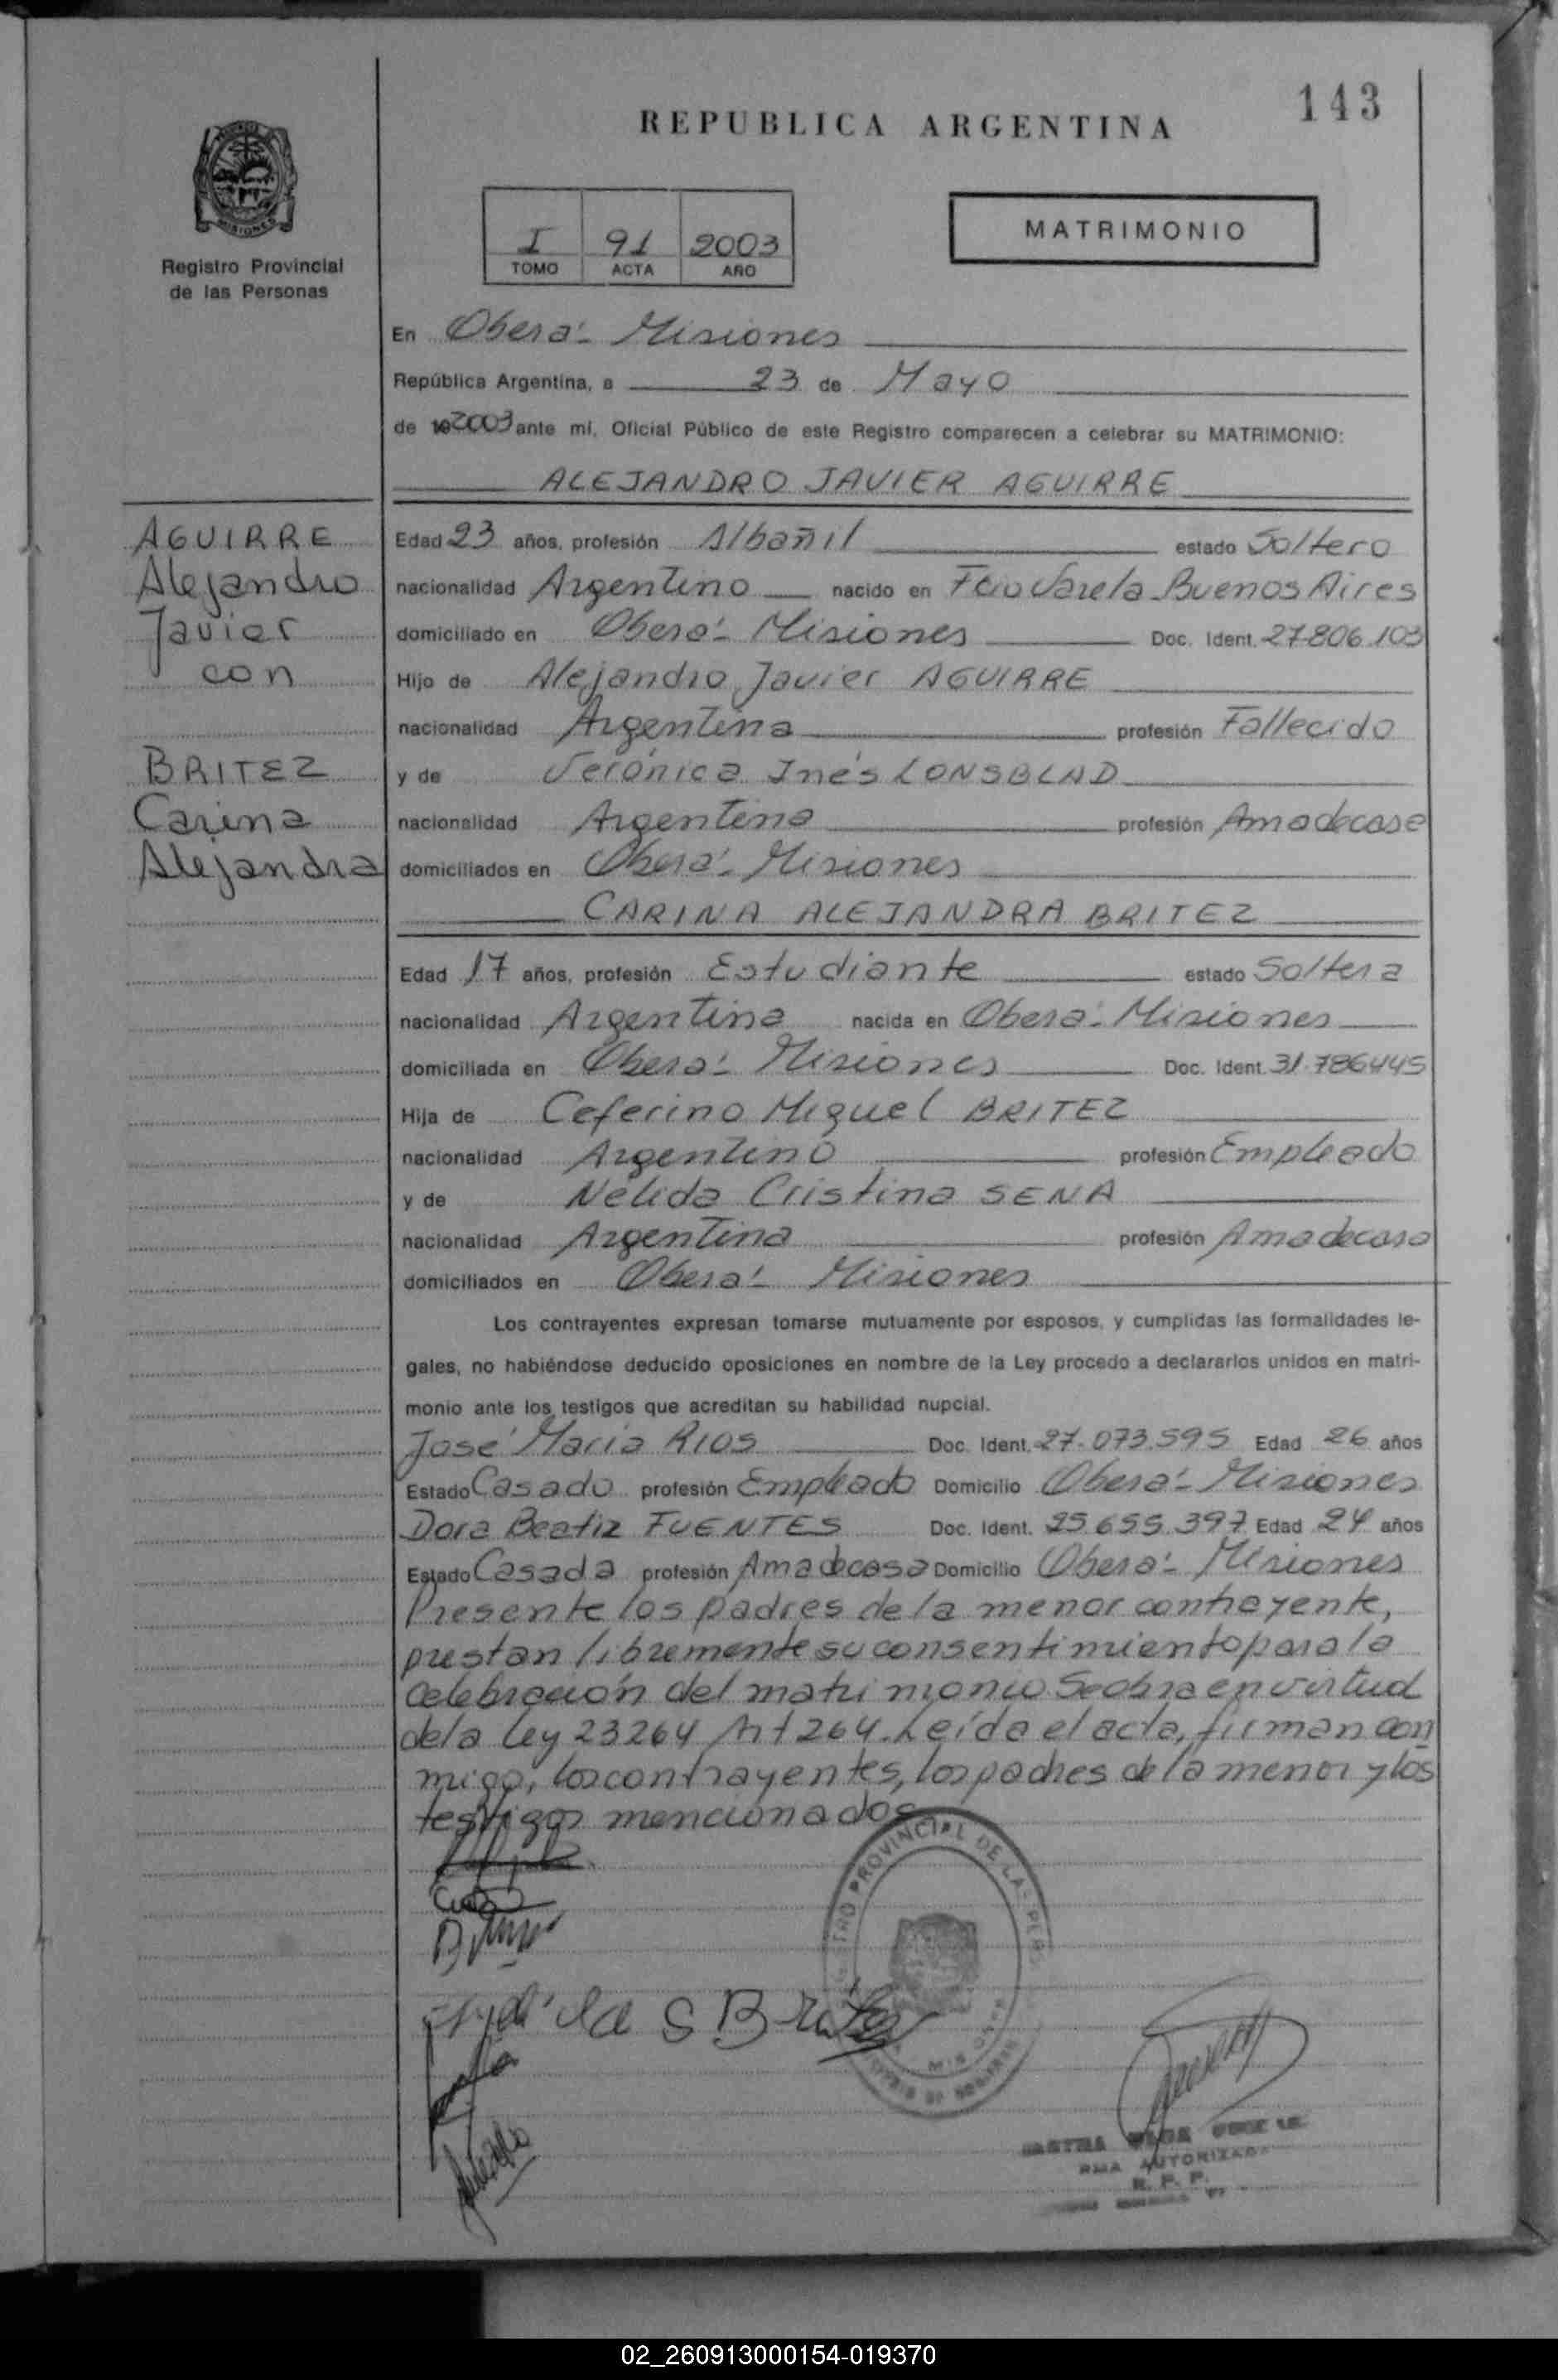 143
REPUBLICA ARGENTINA
MISIONES
Registro Provincial
de las Personas
I 91 2003
TOMO ACTA AÑO
MATRIMONIO
En Oberá - Misiones
República Argentina, a 23 de Mayo
de 2003 ante mi, Oficial Público de este Registro comparecen a celebrar su MATRIMONIO:
ALEJANDRO JAVIER AGUIRRE
AGUIRRE
Alejandro
Javier
con
BRITEZ
Carina
Alejandra
Edad 23 años, profesión Albañil estado Soltero
nacionalidad Argentino nacido en Fcio Varela Buenos Aires
domiciliado en Oberá - Misiones Doc. Ident. 27806.103
Hijo de Alejandro Javier AGUIRRE
nacionalidad Argentina profesión Fallecido
y de Verónica Inés LONSBLAD
nacionalidad Argentina profesión Amadecasa
domiciliados en Oberá - Misiones
CARINA ALEJANDRA BRITEZ
Edad 17 años, profesión Estudiante estado Soltera
nacionalidad Argentina nacida en Oberá - Misiones
domiciliada en Oberá - Misiones Doc. Ident. 31.786445
Hija de Ceferino Miguel BRITEZ
nacionalidad Argentino profesión Empleado
y de Nélida Cristina SENA
nacionalidad Argentina profesión Amadecasa
domiciliados en Oberá - Misiones
Los contrayentes expresan tomarse mutuamente por esposos, y cumplidas las formalidades le-
gales, no habiéndose deducido oposiciones en nombre de la Ley procedo a declararlos unidos en matri-
monio ante los testigos que acreditan su habilidad nupcial.
José María RIOS Doc. Ident. 27.073.595 Edad 26 años
Estado Casado profesión Empleado Domicilio Oberá - Misiones
Dora Beatiz FUENTES Doc. Ident. 25.655.397 Edad 24 años
Estado Casada profesión Amadecasa Domicilio Oberá - Misiones
Presente los padres de la menor contrayente,
prestan libremente su consentimiento para la
celebración del matrimonio. Se obra en virtud
de la ley 23264 Art 264. Leída el acta, firman con
migo, los contrayentes, los padres de la menor y los
testigos mencionados
PROVINCIAL DE LAS
S Britez
AUTORIZADA
R. P. P.
02_260913000154-019370